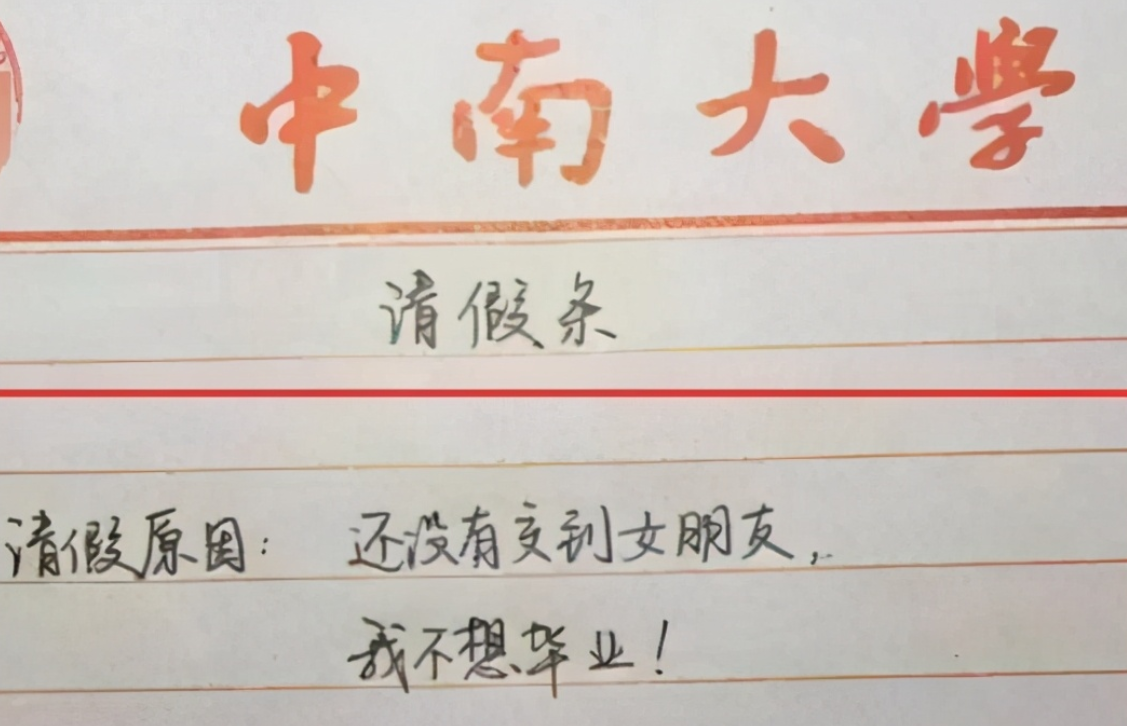 中南大學
请假条
请假原因： 还没有交到女朋友，
我不想毕业！